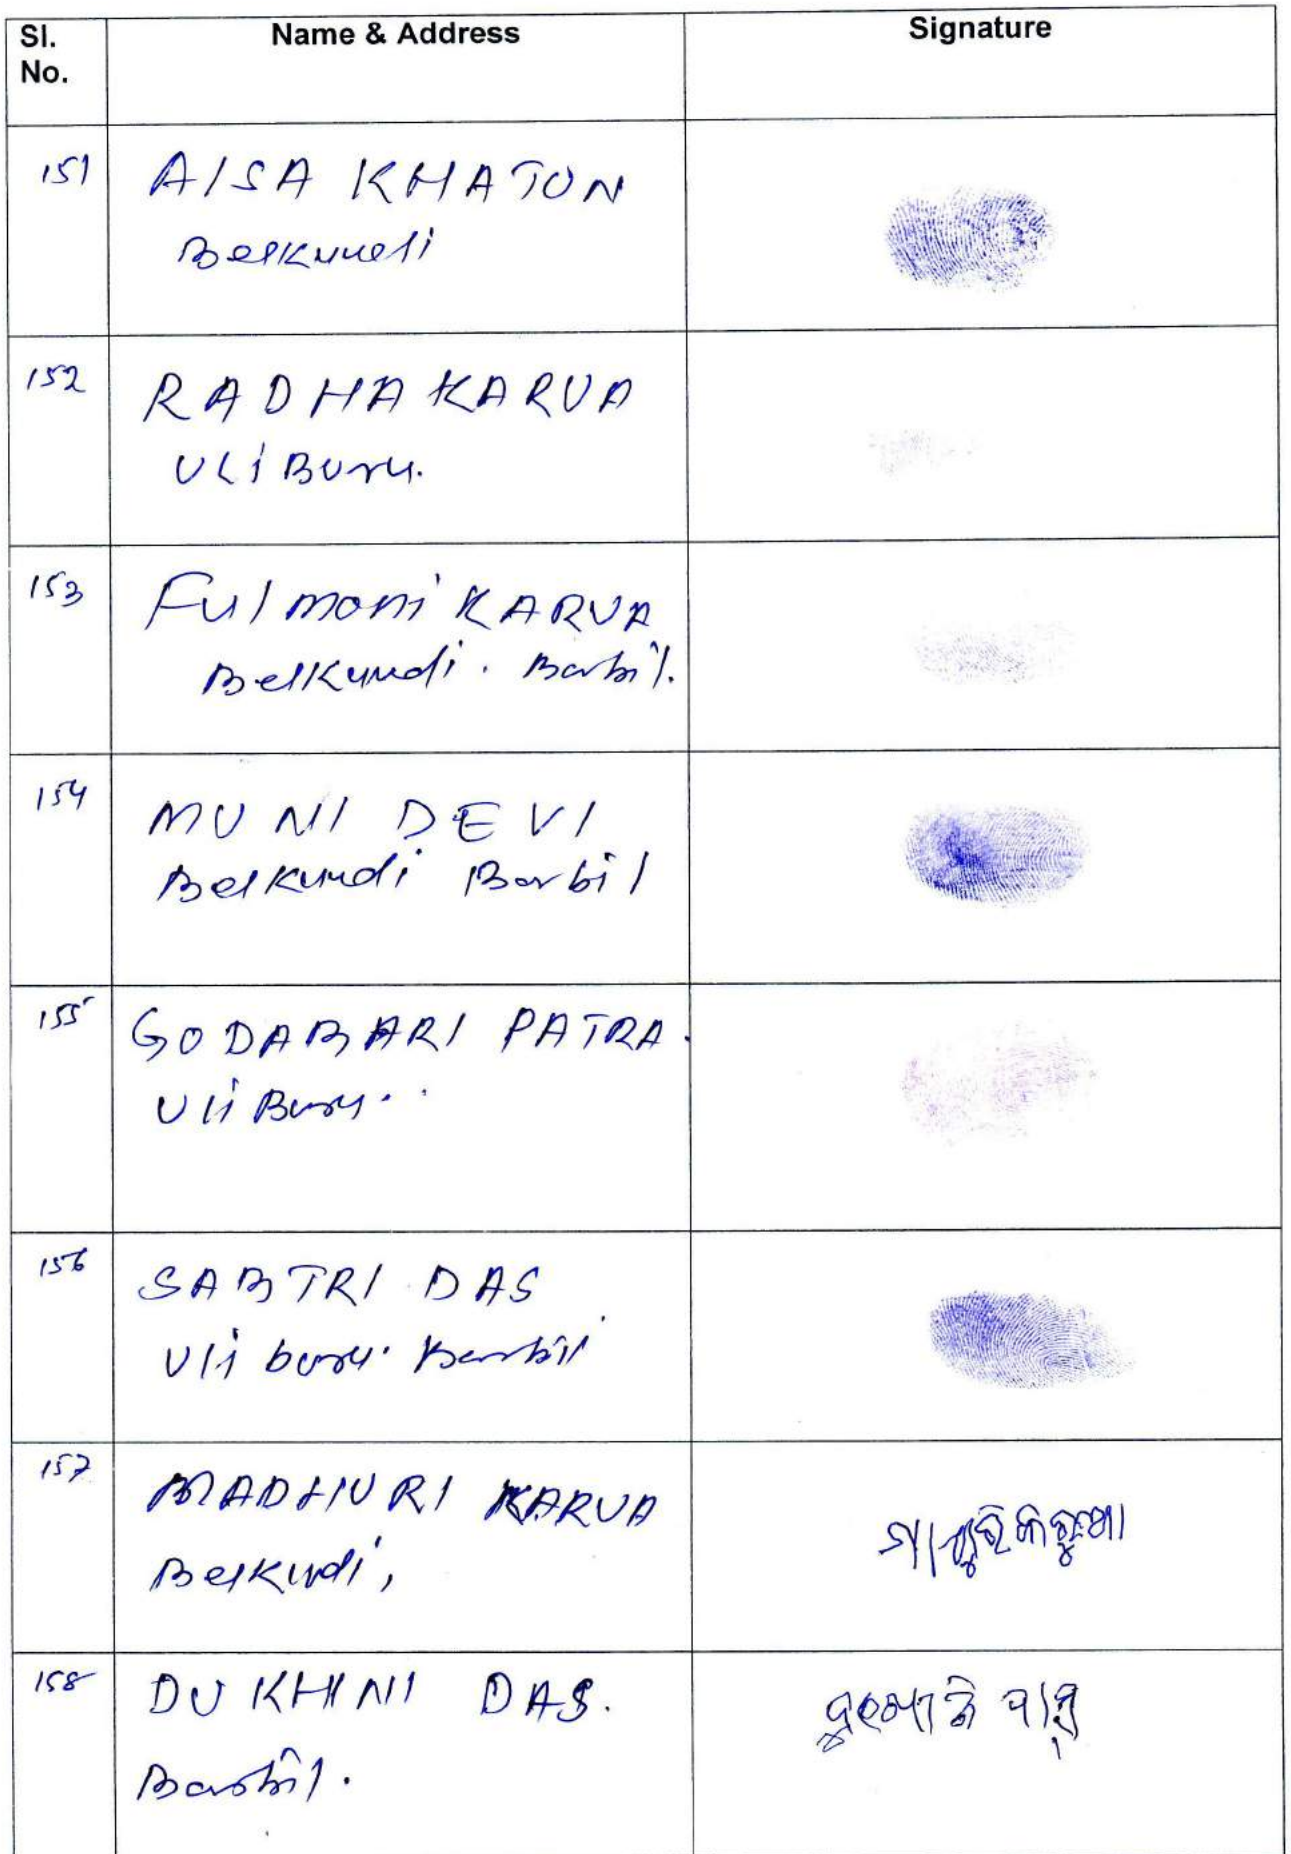 Sl. No. Name & Address Signature
151 AISA KHATON
Belkundi
152 RADHA KARUA
Uli Buru.
153 Fulmoni KARUA
Belkundi. Barbil.
154 MUNI DEVI
Belkundi Barbil
155 GODABARI PATRA.
Uli Buru.
156 SABTRI DAS
Uli buru. Barbil
157 MADHURI KARUA
Belkudi,
158 DUKHINI DAS.
Barbil.